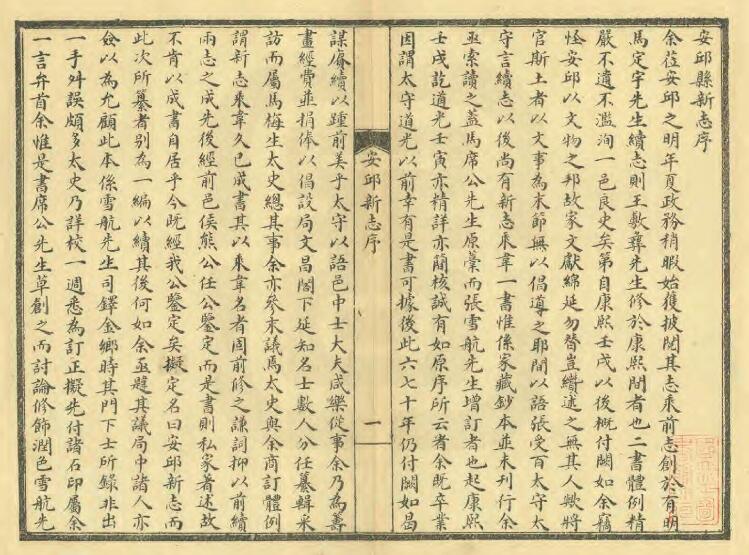 安邱縣新志序
余莅安邱之明年夏政務稍暇始獲披閱其志乘前志創於有明
馬定宇先生續志則王敷彞先生修於康熙間者也二書體例精
嚴不遺不濫洵一邑良史矣第自康熙壬戌以後概付闕如余竊
怪安邱以文物之邦故家文獻綿延勿替豈纘述之無其人歟將
官斯土者以文事為末節無以倡導之耶間以語張受百太守太
守言續志以後尚有新志乘韋一書惟係家藏鈔本並未刊行余
亟索讀之蓋馬席公先生原藁而張雪航先生增訂者也起康熙
壬戌訖道光壬寅亦精詳亦簡核誠有如原序所云者余既卒業
因謂太守道光以前幸有是書可據後此六七十年仍付闕如曷
安邱新志序
一
謀賡續以踵前美乎太守以語邑中士大夫咸樂從事余乃為籌
畫經費並捐俸以倡設局文昌閣下延知名士數人分任纂輯采
訪而屬馬梅生太史總其事余亦參末議焉太史與余商訂體例
謂新志乘韋久已成書其以乘韋名者固前修之謙詞抑以前續
兩志之成先後經前邑侯熊公任公鑒定而是書則私家著述故
不肯以成書自居乎今既經我公鑒定矣擬定名曰安邱新志而
此次所纂者別為一編以續其後何如余亟韙其議局中諸人亦
僉以為允顧此本係雪航先生司鐸金鄉時其門下士所錄非出
一手舛誤頗多太史乃詳校一過悉為訂正擬先付諸石印屬余
一言弁首余惟是書席公先生草創之而討論修飾潤色雪航先